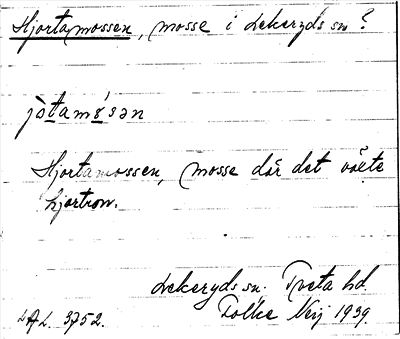 Hjortamossen, mosse i Lekeryds sn?
jòtamósən
Hjortamossen, mosse där det växte
hjortron.
Lekeryds sn. Tveta hd.
LAL. 3752. Folke Neij 1939.